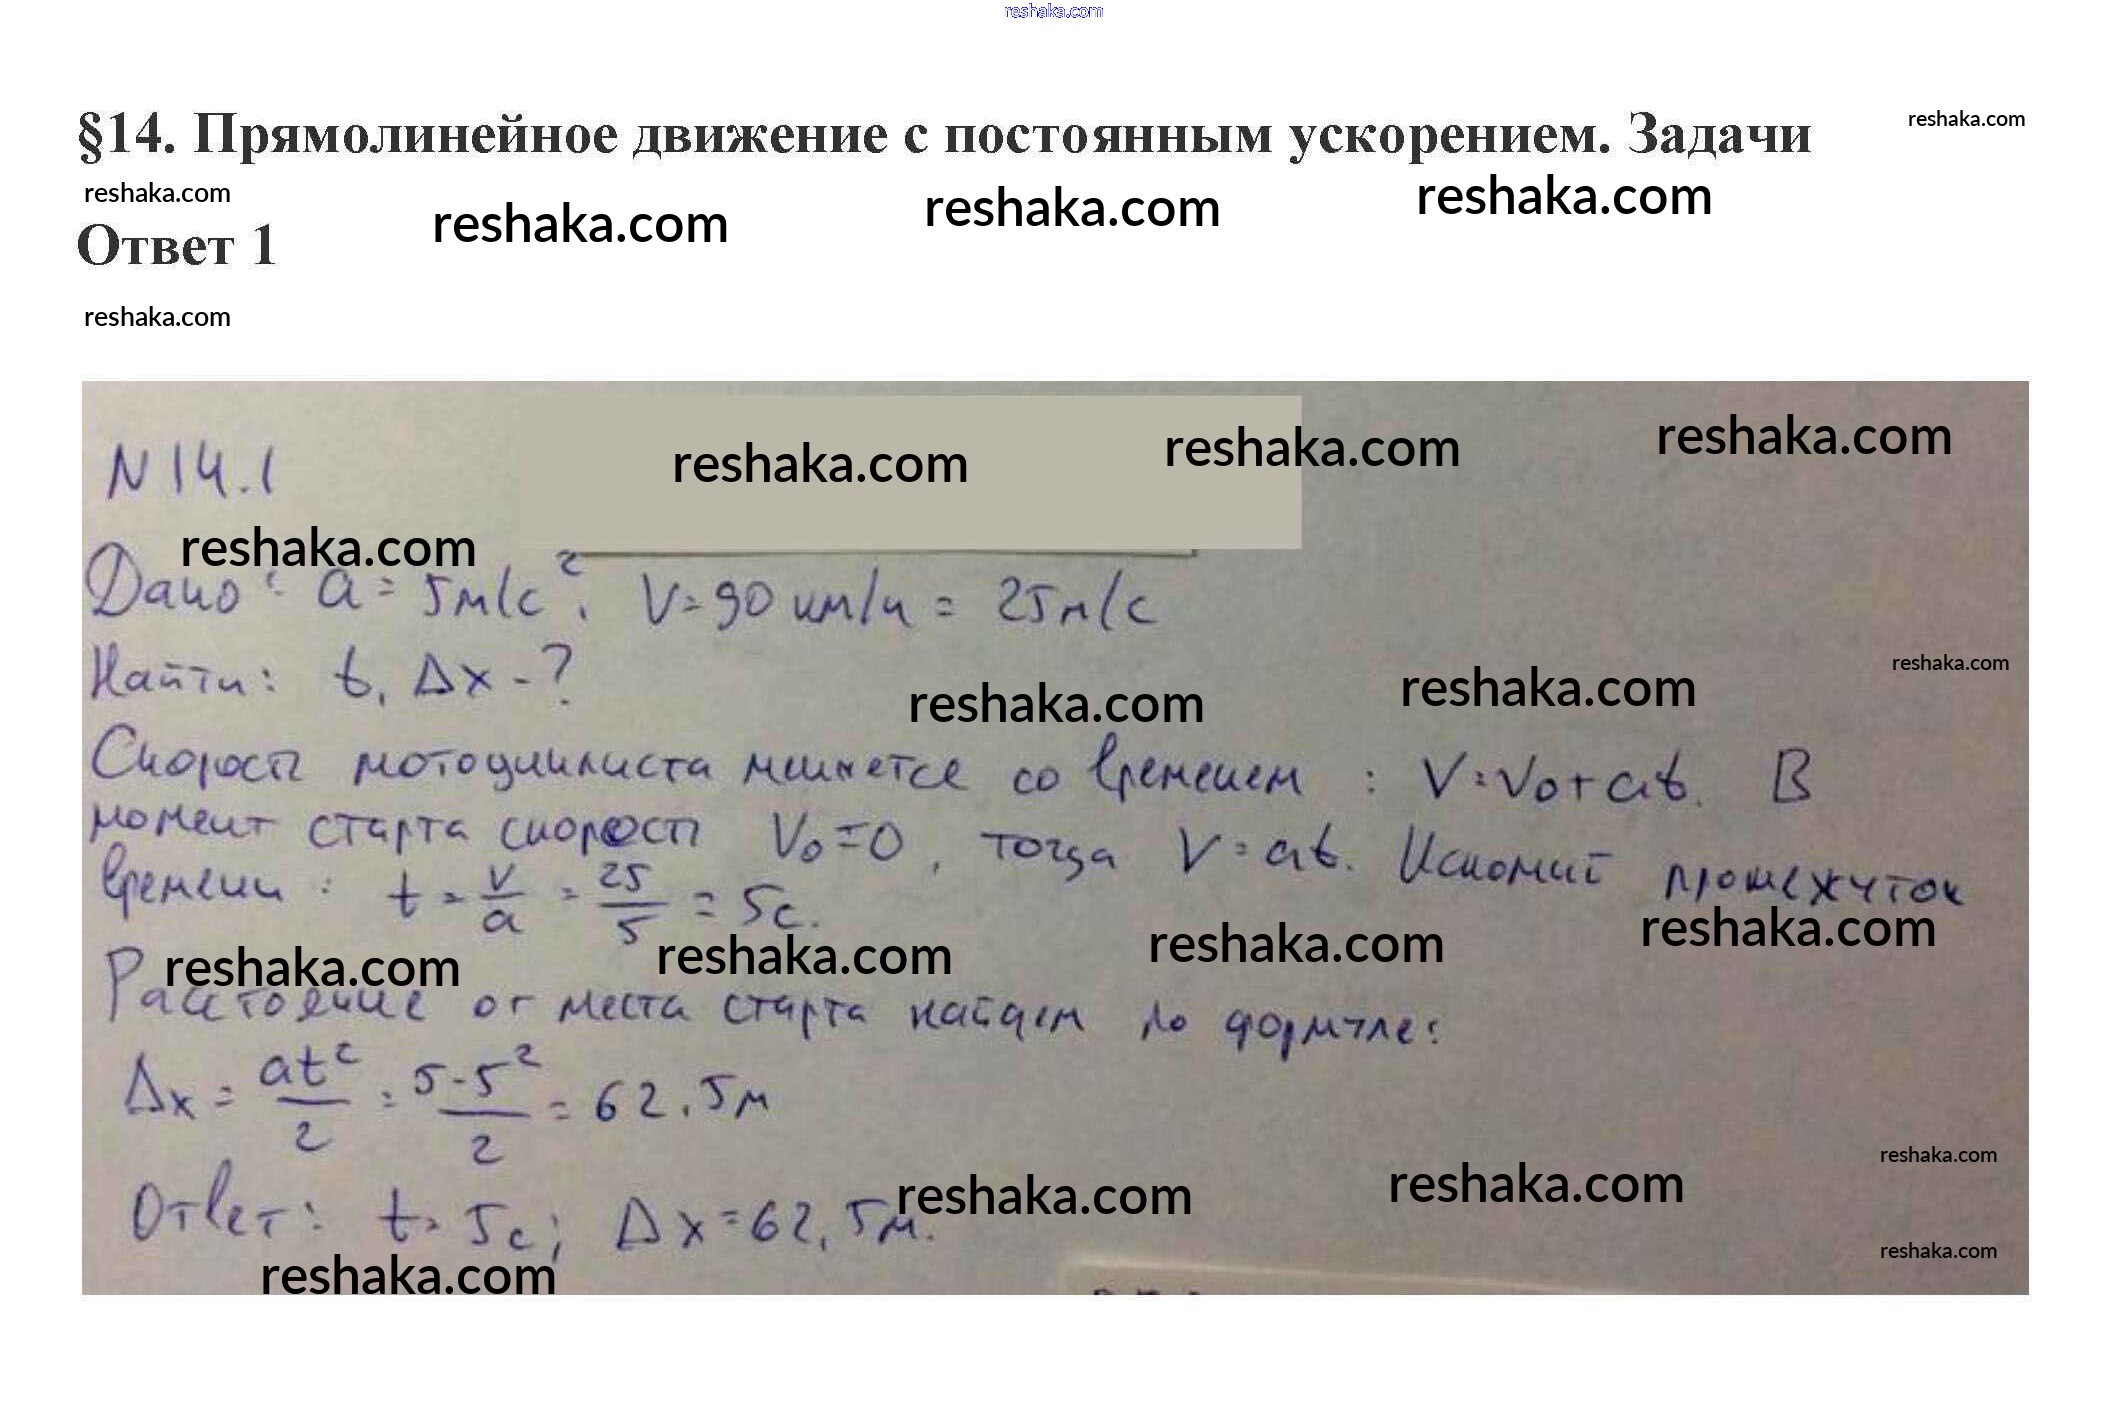 reshaka.com
§14. Прямолинейное движение с постоянным ускорением. Задачи
reshaka.com
reshaka.com
reshaka.com
reshaka.com
reshaka.com
Ответ 1
reshaka.com
N 14.1
reshaka.com
reshaka.com
reshaka.com
reshaka.com
Дано: a = 5м/с², V = 90 км/ч = 25м/с
Найти: t, Δx - ?
reshaka.com
reshaka.com
reshaka.com
Скорость мотоциклиста меняется со временем : V = V₀ + at. В
момент старта скорость V₀ = 0, тогда V = at. Искомый промежуток
времени : t = V/a = 25/5 = 5с.
reshaka.com
reshaka.com
reshaka.com
reshaka.com
Расстояние от места старта найдем по формуле:
Δx = at²/2 = 5·5²/2 = 62,5м
reshaka.com
reshaka.com
reshaka.com
Ответ: t = 5с; Δx = 62,5м.
reshaka.com
reshaka.com